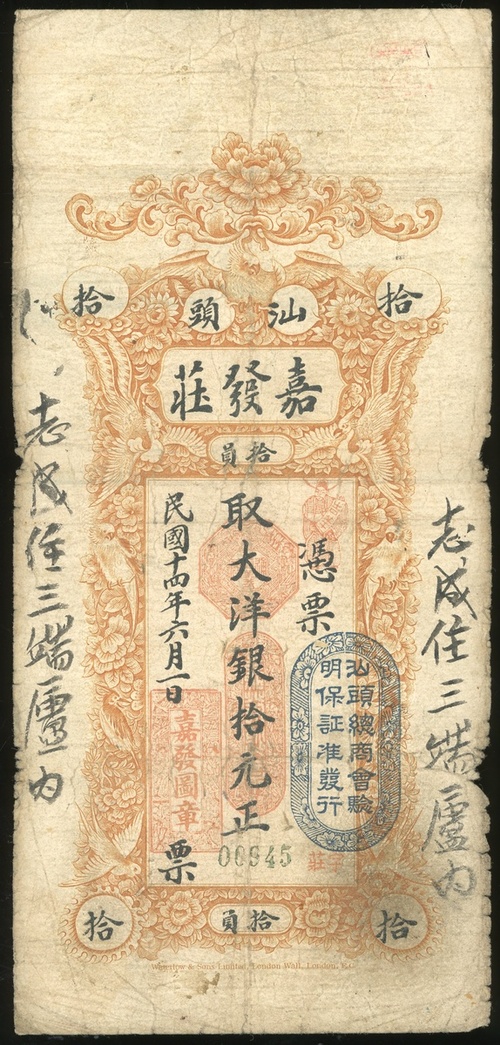 拾 汕頭 拾
嘉發莊
拾員
憑票
取大洋銀拾元正
民國十四年六月一日
票
汕頭總商會驗
明保証准發行
嘉發圖章
00945
拾 拾員 拾
Waterlow & Sons Limited, London Wall, London, E.C.
志成住三端廬內
志成住三端廬內